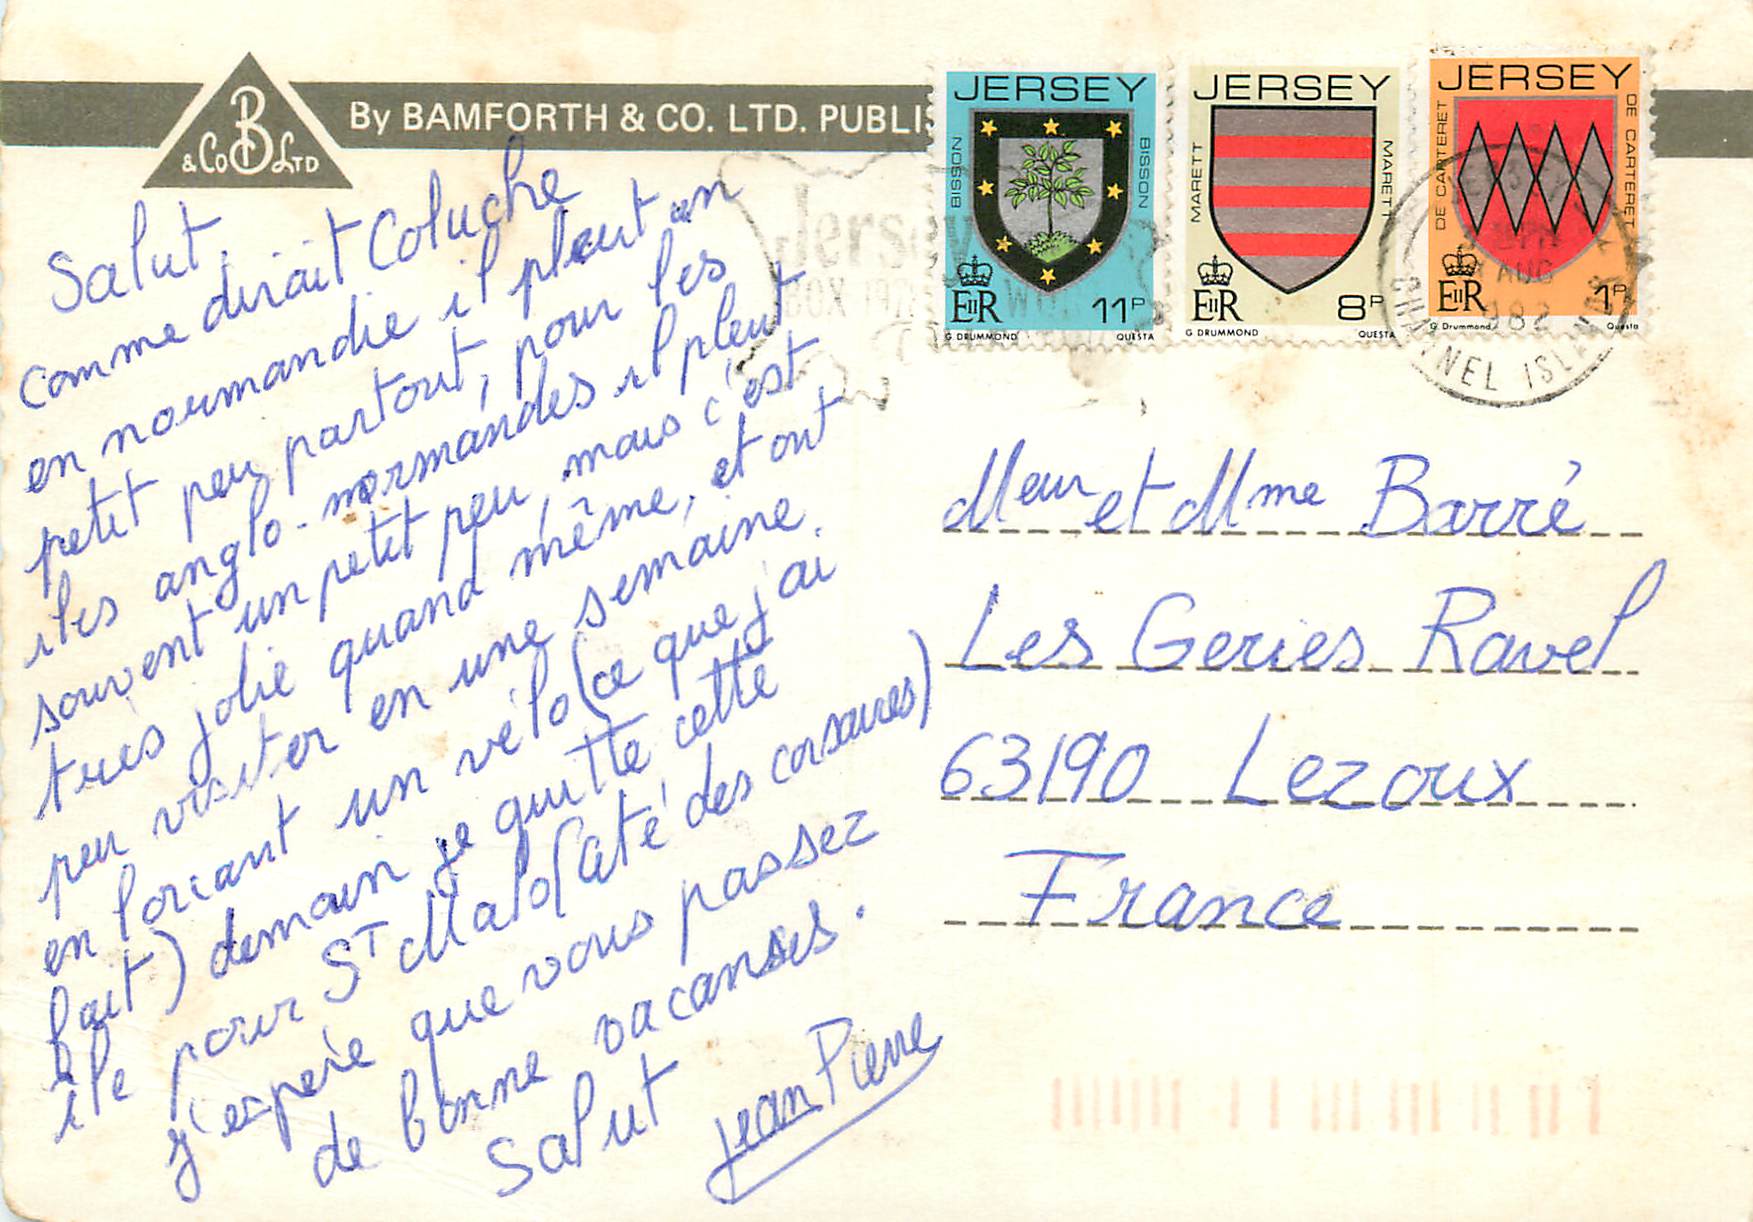 B
& Co LTD
By BAMFORTH & CO. LTD. PUBLIS
JERSEY
BISSON
BISSON
EIIR
11P
G DRUMMOND
QUESTA
JERSEY
MARETT
MARETT
EIIR
8P
G DRUMMOND
QUESTA
JERSEY
DE CARTERET
DE CARTERET
EIIR
1P
G. Drummond
Questa
Jersey
AUG
CHANNEL ISLANDS
Salut,
comme dirait Coluche
en normandie il pleut un
petit peu partout, pour les
iles anglo-normandes il pleut
souvent un petit peu, mais c'est
très jolie quand même, et ont
peu visiter en une semaine.
en loriant un vélo (ce que j'ai
fait) demain je quitte cette
ile pour ST Malo (cité des corsaires)
j'espère que vous passez
de bonne vacanses.
Salut
Jean Pierre
Meur et Mme Barré
Les Geries Ravel
63190 Lezoux
France